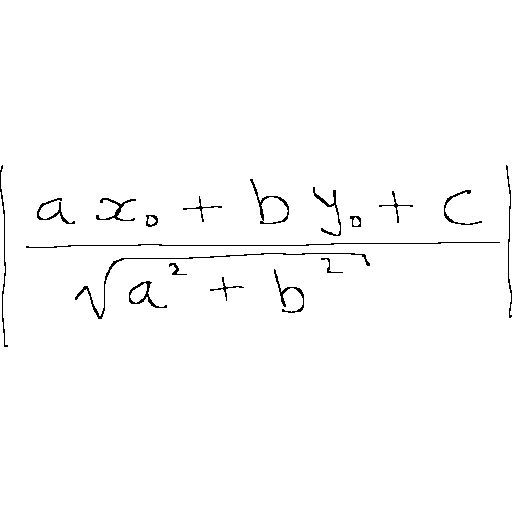 \left| \frac{a x_0 + b y_0 + c}{\sqrt{a^2 + b^2}} \right|